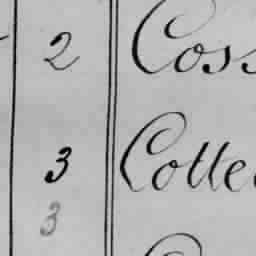 2 Coss
3 Colle
3